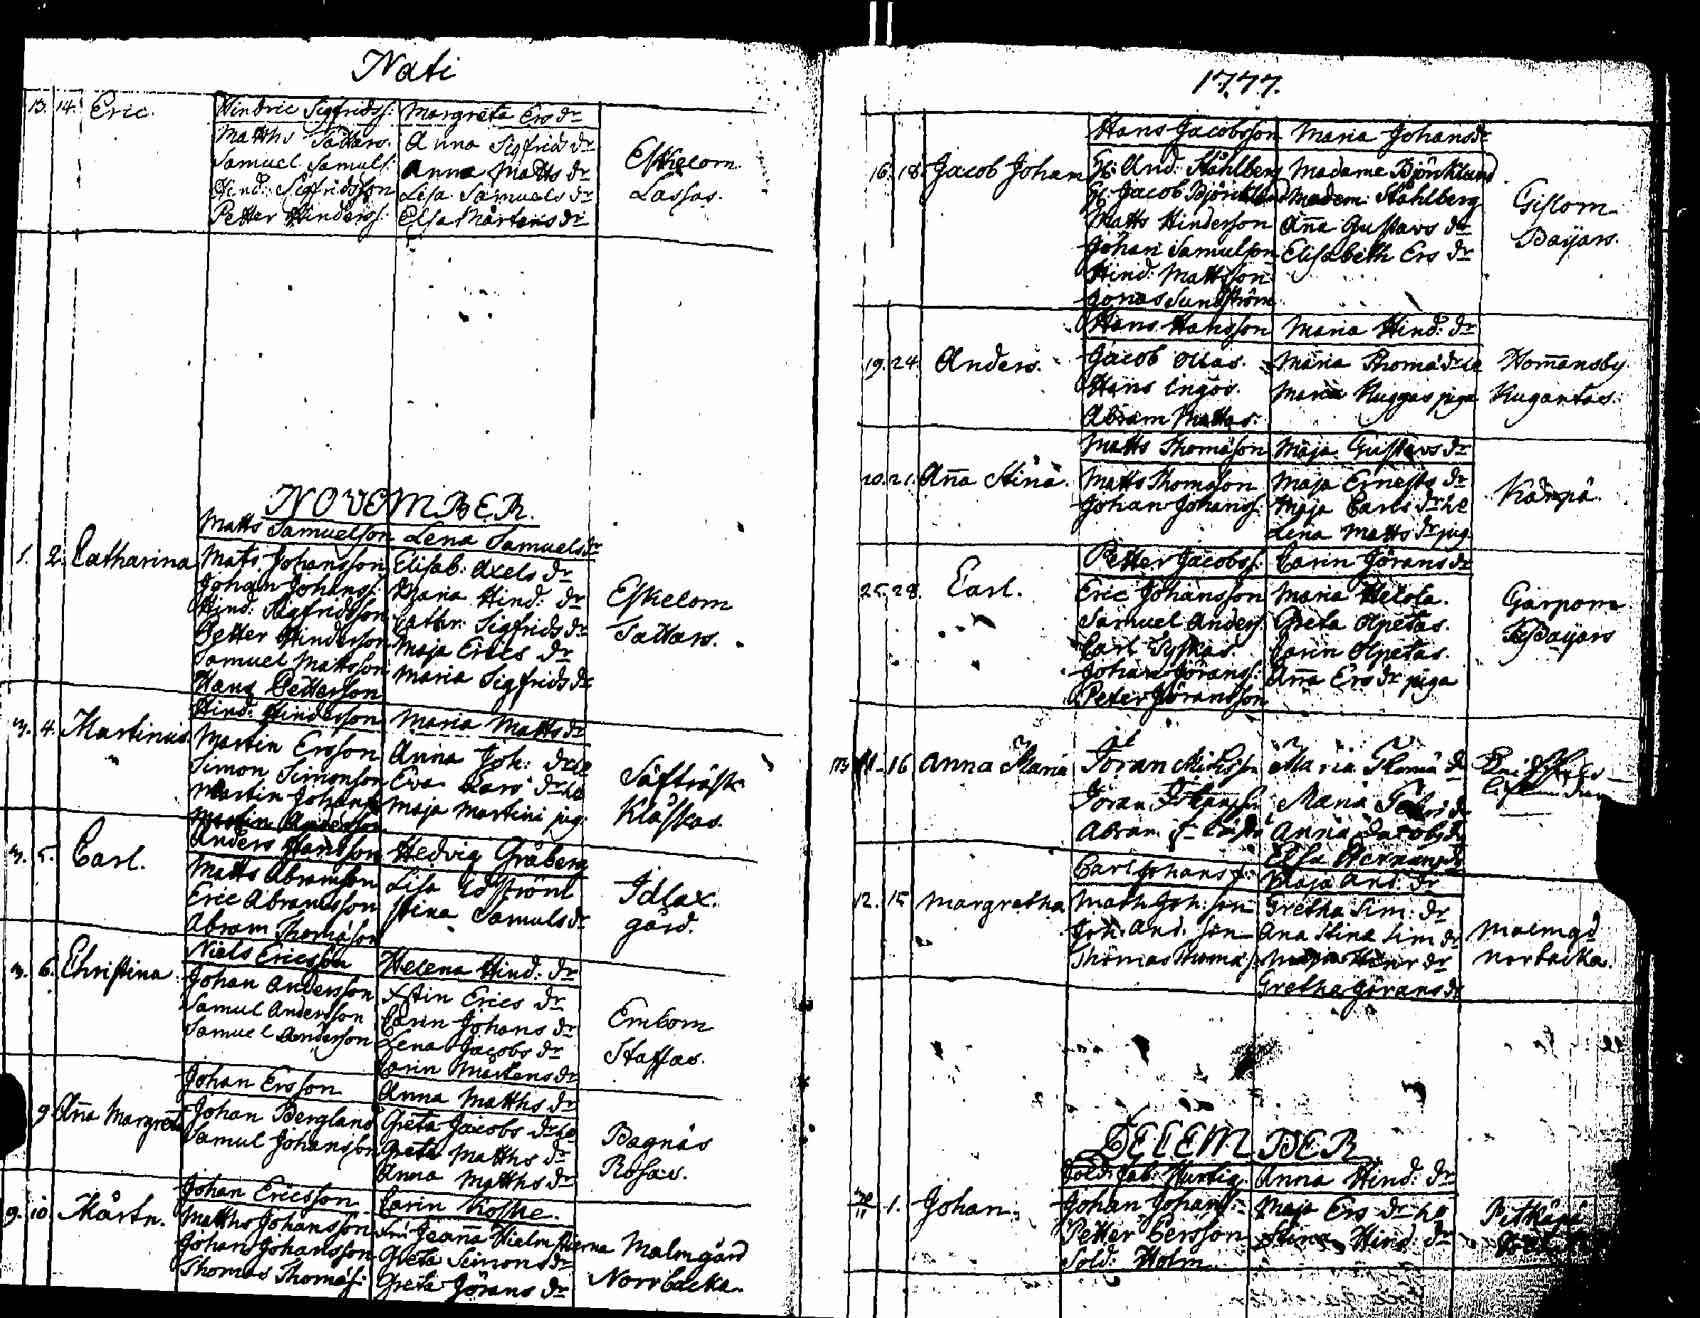 Nati
13. 14. Eric. Hindric Sigfridss: Margreta Ers dr
Matths Sattars. Anna Sigfrids dr
Samuel Samuls: Anna Matts dr Eskelom
Hind: Sigfridsson Lisa Samuels dr Lassas.
Petter Hinderss: Elsa Mårtens dr
NOVEMBER.
Matts Samuelson Lena Samuels dr
1. 2. Catharina Mats Johansson Elisab: Axels dr
Johan Johanss: Maria Hind: dr Eskelom
Hind. Sigfridsson Cathr: Sigfrids dr Sattars.
Petter Hinderson Maja Erics dr
Samuel Mattsson Maria Sigfrids dr
Hans Petterson
Hind: Hindersson Maria Matts dr
3. 4. Martinus. Martin Ersson Anna Joh: dr
Simon Simonson Eva Lars dr Säfträsk
Martin Johans Maja Martini pig: Klåskas.
Martin Andersson
Anders Hansson Hedvig Gråberg
3. 5. Carl. Matts Abramson Lisa Edström Idlax
Eric Abramsson Stina Samuls dr gård.
Abram Thomasson
Niels Ericsson Helena Hind: dr
3. 6. Christina. Johan Andersson Xstin Erics dr
Samul Andersson Carin Johans dr Embom
Samuel Anderson Lena Jacobs dr Staffas.
Carin Mårtens dr
Johan Ersson Anna Matths dr
9. Aña Margreta Johan Bergland Greta Jacobs dr
Samul Johansson Greta Matths dr Bagnäs
Anna Matths dr Rosas.
Johan Ericsson Carin Koske.
9. 10. Mårtn. Matths Johansson Jeaña Hielm Malmgård
Johan Johansson Greta Simons dr Norrbacka.
Thomas Thomass: Greta Jörans dr
1777.
Hans Jacobsson Maria Johans dr
16. 18. Jacob Johan Hr: And. Ståhlberg Madame Björklund
Hr Jacob Björklund Madem: Ståhlberg Gislom
Matts Hinderson Aña Gustavs dr Bäijars.
Johan Samulson Elisabeth Ers dr
Hind: Mattsson
Jonas Sundström
Hans Hansson Maria Hind: dr
19. 24. Anders. Jacob Ollas. Maria Thomæ dr Homansby
Hans Ingos. Maria Kuggas piga Kugantas.
Abram Mattas.
Matts Thomason Maja Gustavs dr
20. 21. Aña Stina. Matts Thomason Maja Ernests dr
Johan Johanss: Maja Carls dr
Lena Matts dr pig
Petter Jacobss: Carin Jörans dr
25. 28. Carl. Eric Johansson Maria Helola. Garpom
Samuel Anders: Greta Olpetas. Bäijars
Carl Tyskas. Carin Olpetas.
Johan Jöranss: Aña Ers dr piga
Peter Jöransson
16 Anna Maria Jöran Maria Thomæ dr
Jöran Johansson Maria
Abram Anna Jacobs dr
Elsa Hermans dr
Carl Johans s: Maja And: dr
12. 15 Margretha Math Joh: son Gretha Sim: dr
Joh: And: son Ana Stina Sim dr Malmgd
Thomas Thomas: Maja Henr dr Norbacka.
Gretha Görans dr
DECEMBER.
Sold: Jab: Hurtig Anna Hind: dr
1. Johan. Johan Johanss: Maja Ers dr
Petter Persson Stina Hind: dr
Sold: Holm